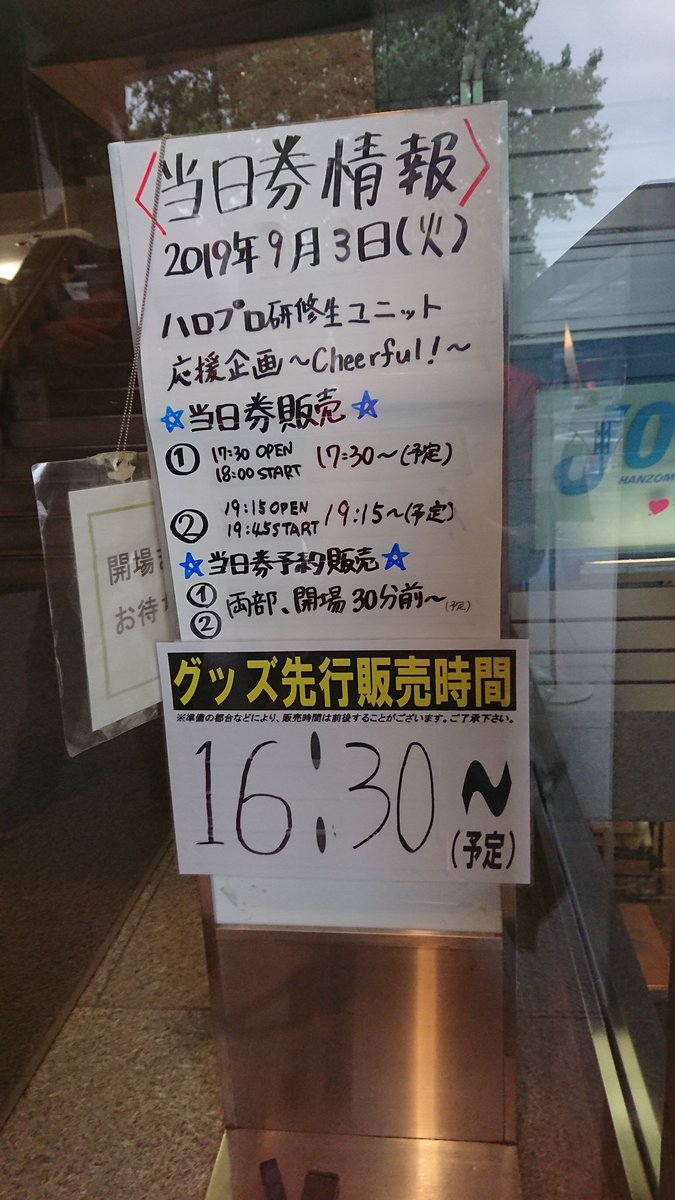 〈当日券情報〉
2019年9月3日(火)
ハロプロ研修生ユニット
応援企画～Cheerful!～
☆当日券販売☆
① 17:30 OPEN 17:30～(予定)
18:00 START
② 19:15 OPEN 19:15～(予定)
19:45 START
☆当日券予約販売☆
① 両部、開場30分前～(予定)
②
開場
お待
JO
HANZOM
グッズ先行販売時間
※準備の都合などにより、販売時間は前後することがございます。ご了承下さい。
16:30～
(予定)